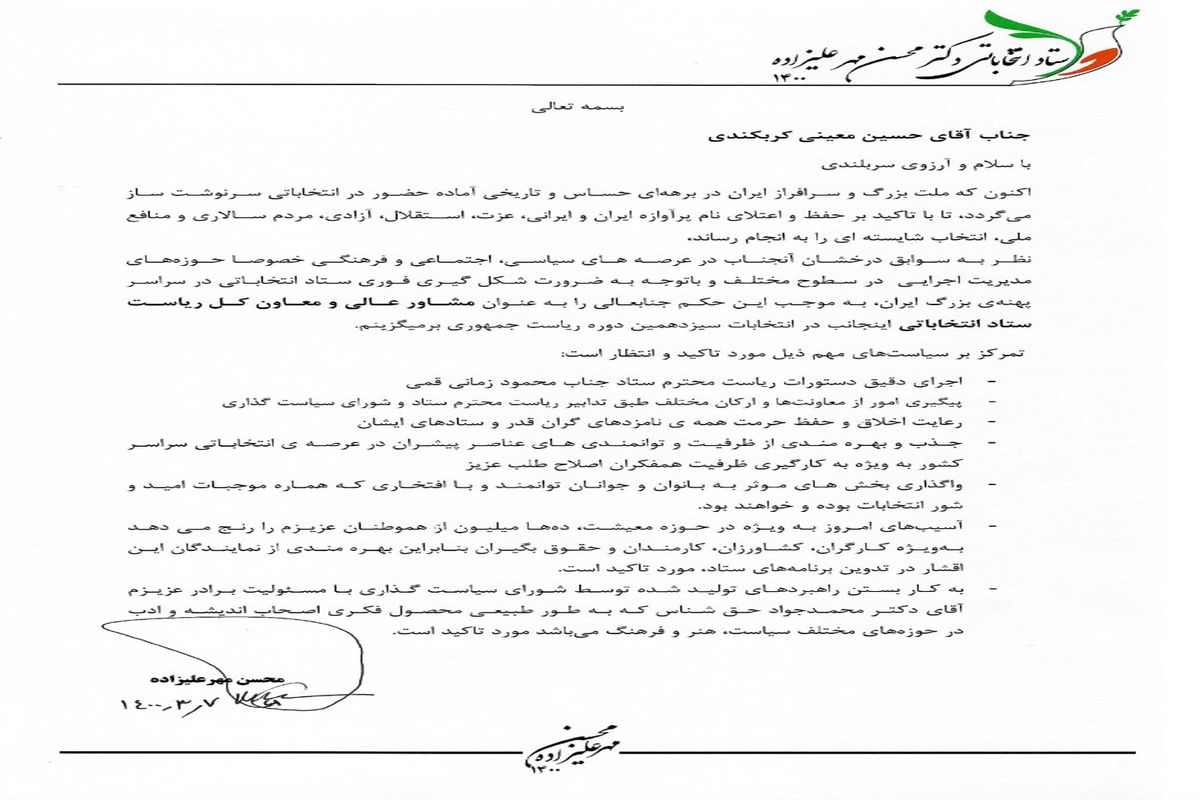 ستاد انتخاباتی دکتر محسن مهرعلیزاده
۱۴۰۰
بسمه تعالی
جناب آقای حسین معینی کربکندی
با سلام و آرزوی سربلندی
اکنون که ملت بزرگ و سرافراز ایران در برهه‌ای حساس و تاریخی آماده حضور در انتخاباتی سرنوشت ساز
می‌گردد، تا با تاکید بر حفظ و اعتلای نام پرآوازه ایران و ایرانی، عزت، استقلال، آزادی، مردم سالاری و منافع
ملی، انتخاب شایسته ای را به انجام رساند.
نظر به سوابق درخشان آنجناب در عرصه های سیاسی، اجتماعی و فرهنگی خصوصا حوزه‌های
مدیریت اجرایی در سطوح مختلف و باتوجه به ضرورت شکل گیری فوری ستاد انتخاباتی در سراسر
پهنه‌ی بزرگ ایران، به موجب این حکم جنابعالی را به عنوان مشاور عالی و معاون کل ریاست
ستاد انتخاباتی اینجانب در انتخابات سیزدهمین دوره ریاست جمهوری برمیگزینم.
تمرکز بر سیاست‌های مهم ذیل مورد تاکید و انتظار است:
- اجرای دقیق دستورات ریاست محترم ستاد جناب محمود زمانی قمی
- پیگیری امور از معاونت‌ها و ارکان مختلف طبق تدابیر ریاست محترم ستاد و شورای سیاست گذاری
- رعایت اخلاق و حفظ حرمت همه ی نامزدهای گران قدر و ستادهای ایشان
- جذب و بهره مندی از ظرفیت و توانمندی های عناصر پیشران در عرصه ی انتخاباتی سراسر
کشور به ویژه به کارگیری ظرفیت همفکران اصلاح طلب عزیز
- واگذاری بخش های موثر به بانوان و جوانان توانمند و با افتخاری که هماره موجبات امید و
شور انتخابات بوده و خواهند بود.
- آسیب‌های امروز به ویژه در حوزه معیشت، ده‌ها میلیون از هموطنان عزیزم را رنج می دهد
به‌ویژه کارگران، کشاورزان، کارمندان و حقوق بگیران بنابراین بهره مندی از نمایندگان این
اقشار در تدوین برنامه‌های ستاد، مورد تاکید است.
- به کار بستن راهبردهای تولید شده توسط شورای سیاست گذاری با مسئولیت برادر عزیزم
آقای دکتر محمدجواد حق شناس که به طور طبیعی محصول فکری اصحاب اندیشه و ادب
در حوزه‌های مختلف سیاست، هنر و فرهنگ می‌باشد مورد تاکید است.
محسن مهرعلیزاده
۱۴۰۰٫۳٫۷
محسن
مهرعلیزاده
۱۴۰۰